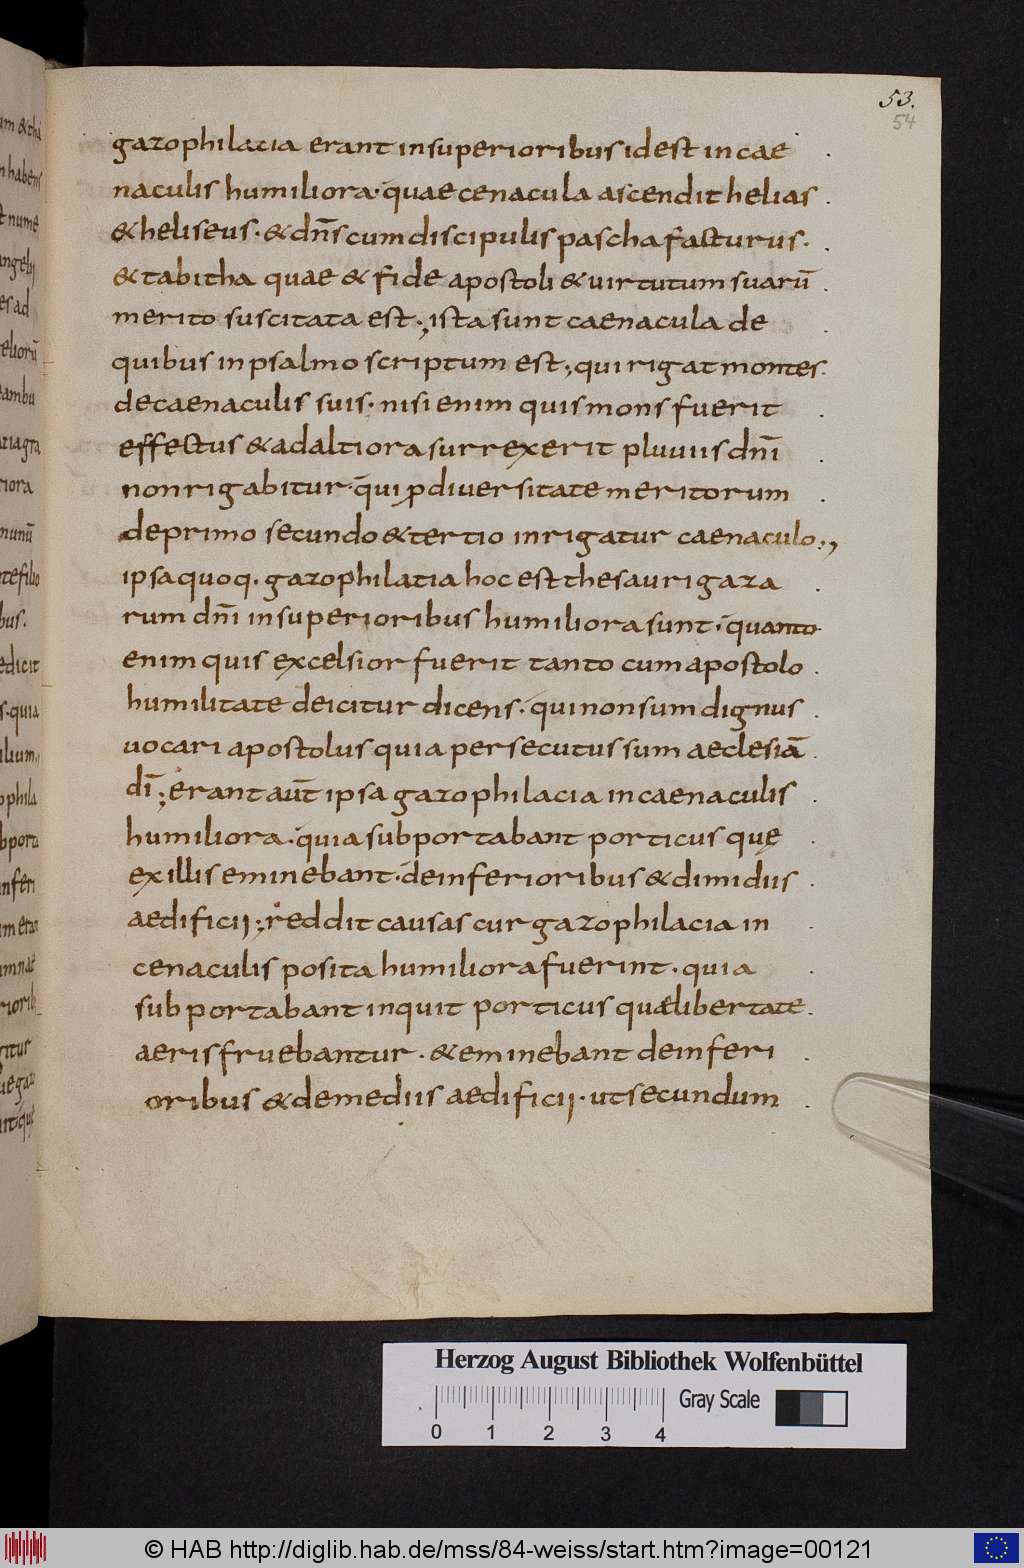 53.
54
gazophilacia erant insuperioribus idest incae
naculis humiliora· quae cenacula ascendit helias
& heliseus· & dn̄s cum discipulis pascha facturus·
& tabitha quae & fide apostoli & uirtutum suarū
merito suscitata est; ista sunt caenacula de
quibus in psalmo scriptum est; qui rigat montes
decaenaculis suis· nisi enim quis mons fuerit
effectus & adaltiora surrexerit pluuiis dn̄i
non rigabitur· qui ꝓ diuersitate meritorum
de primo secundo & tertio inrigatur caenaculo;
ipsa quoq· gazophilatia hoc est thesauri gaza
rum dn̄i insuperioribus humiliora sunt· quanto
enim quis excelsior fuerit tanto cum apostolo
humilitate deicitur dicens· qui non sum dignus
uocari apostolus quia persecutus sum aeclesiā
dī; erant aūt ipsa gazophilacia incaenaculis
humiliora· quia subportabant porticus quę
ex illis eminebant· deinferioribus & dimidiis
aedificij; reddit causas cur gazophilacia in
cenaculis posita humiliora fuerint· quia
subportabant inquit porticus quae libertate
aeris fruebantur· & eminebant deinferi
oribus & demediis aedificij· ut secundum
Herzog August Bibliothek Wolfenbüttel
Gray Scale
0 1 2 3 4
© HAB http://diglib.hab.de/mss/84-weiss/start.htm?image=00121